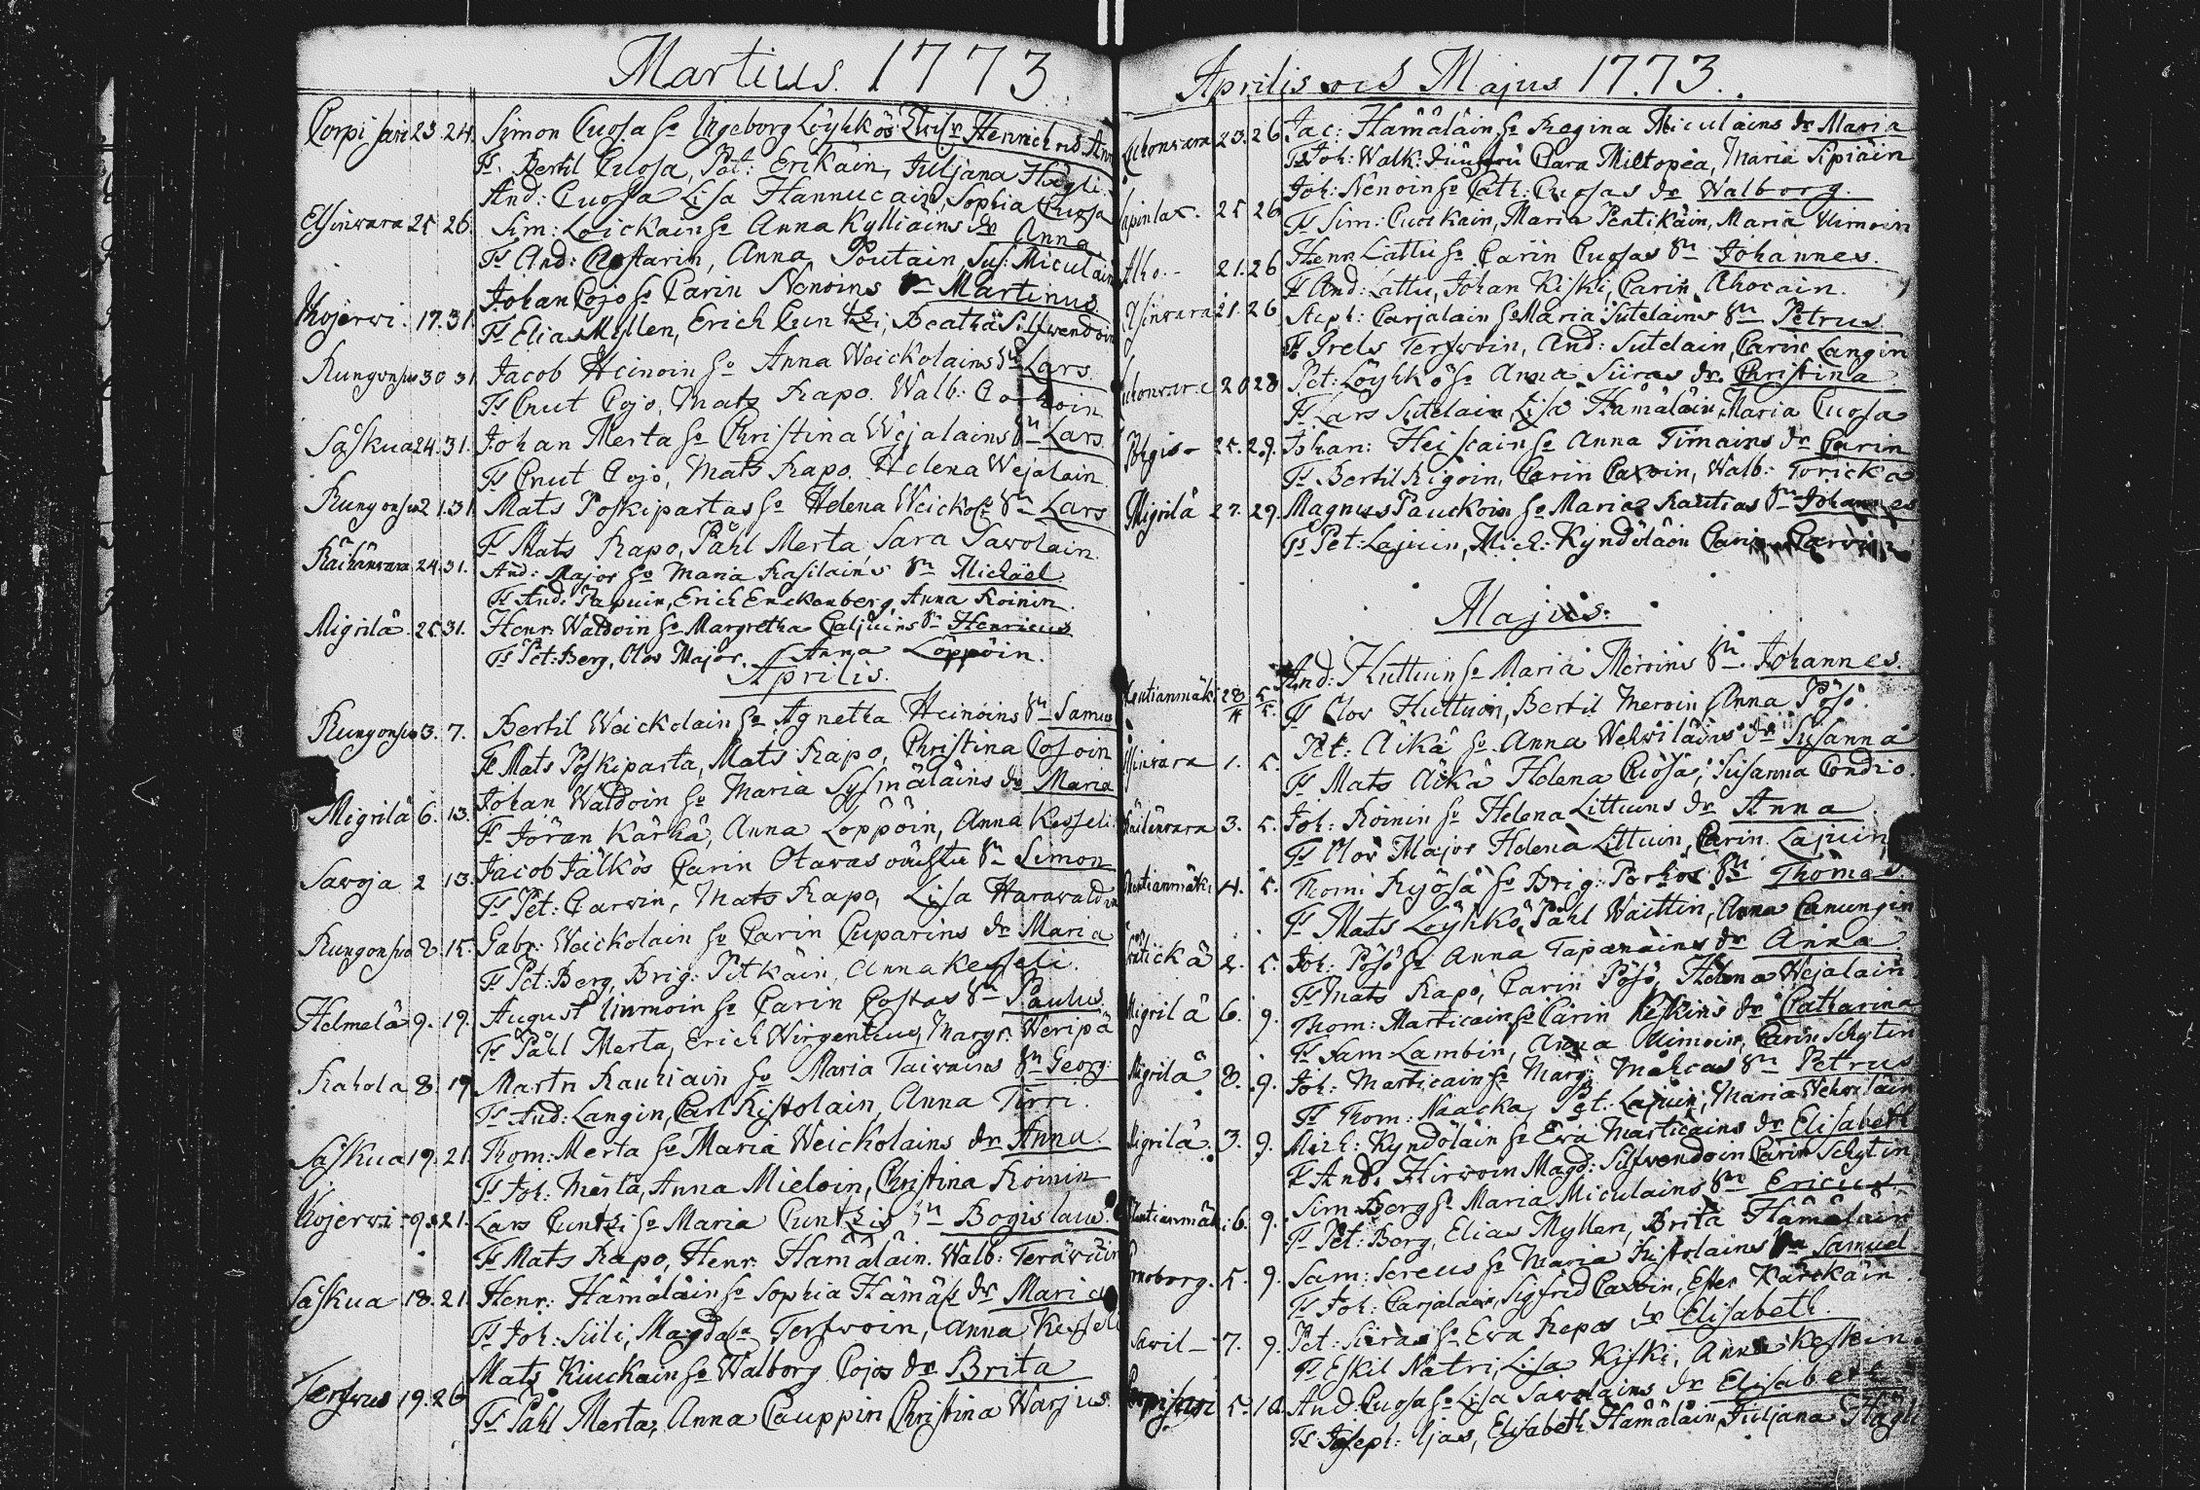 Martius. 1773
Corpisari 23. 24. Simon Cuosa h:o Ingeborg Löyhkös Henrich Ann
Ts. Bertil Cuosa, Pet: Erikäin, Juljana Hägli.
And: Cuosa Lisa Hannucain, Sophia Cuosa
Elsinvara 25 26. Sim: Loickain h:o Anna Kylliains dr Anna
Ts And: Anna Poutain Sus: Miculain
Kojerwi. 17. 31. Johan Cojo h:o Carin Nenoins Sn Martinus
Ts Elias Myllen, Erich Cuntzi, Beatha Silfwendoin
Rungonsuo 30 31 Jacob Heinoin h:o Anna Weickolains Sn Lars
Ts Cnut Cojo, Mats Rapo. Walb:
Såskua 24. 31. Johan Merta h:o Christina Wejalains Sn Lars
Ts Cnut Cojo, Mats Rapo. Helena Wejalain
Rungonsuo 21. 31 Mats Poskipartas h:o Helena Weickol: Sn Lars
Ts Mats Rapo, Påhl Merta Sara Sawolain.
Räihänvara 24. 31. And: Major h:o Maria Rasilains Sn Michael
Ts And: Papuin, Erich Enckenberg, Anna Roinin.
Migrilä. 25 31. Henr: Waldoin h:o Margretha Caljuins Sn Henricus
Ts Pet: Berg, Olov Major, Anna Löppöin.
Aprilis.
Rungonsuo 3. 7. Bertil Weickolain h:o Agnetha Heinoins Sn Samu
Ts Mats Poskiparta, Mats Rapo, Christina Cosoin
Migrilä 6. 13. Johan Waldoin h:o Maria Sysmäläins dr Maria
Ts Jöran Kärhä, Anna Loppöin, Anna Kesseli
Savoja 2 13. Jacob Jälkös Carin Otavas Sn Simon
Ts Pet: Carvin, Mats Rapo, Lisa Harawald
Rungonsuo 8. 15. Gabr: Weickolain h:o Carin Cuparins dr Maria
Ts Pet: Berg, Brig: Pitkäin, Anna Kesseli.
Helmelä 9. 19. August Uimoin h:o Carin Costas Sn Paulus
Ts Påhl Merta, Erich Wirgentius, Margr: Weripä
Rahola 8. 19 Martn Rauhiain h:o Maria Taivains Sn Georg:
Ts And: Langin, Carl Ristolain, Anna Tirri.
Såskua 19. 21. Thom: Merta h:o Maria Weickolains dr Anna.
Ts Joh: Merta, Anna Mieloin, Christina Roinin
Kojerwi 9. 21. Lars Cuntzi h:o Maria Cuntzis Sn Bogislaus.
Ts Mats Rapo, Henr: Hämäläin. Walb: Teräwäin
Såskua 18. 21. Henr: Hämäläin h:o Sophia Hämäl: dr Maria
Ts Joh: Siili, Magdal: Terfwoin, Anna Kesseli
Terfvus 19. 26 Mats Kiuckain h:o Walborg Cojos dr Brita
Ts Påhl Merta, Anna Cauppin Christina Warjus
Aprilis och Majus 1773.
Cuconvara 23. 26 Jac: Hämäläin h:o Regina Miculains dr Maria
Ts Joh: Walk: Jungfru Clara Miltopea, Maria Sipiäin
25 26 Joh: Nenoin h:o Cath: Cuosas dr Walborg.
Ts Sim: Cuoskain, Maria Pentikäin, Maria Uimoin
Alho. 21. 26 Henr: Lattu h:o Carin Cuosas Sn Johannes.
Ts And: Lattu, Johan Kiski, Carin Ahocain.
Elsinvara 21. 26 Steph: Carjalain h:o Maria Sutelains Sn Petrus
Ts Grels Terfwoin, And: Sutelain, Carin Langin
Cuconvara 20 28 Pet: Löyhkö h:o Anna Siiras dr Christina
Ts Lars Sutelain, Lisa Hämäläin, Maria Cuosa
25. 29. Johan: Heiskain h:o Anna Timains dr Carin
Ts Bertil Rigoin, Carin Caxoin, Walb: Toricka
Migrilä 27. 29. Magnus Pauckoin h:o Maria Rautias Sn Johannes
Ts Pet: Lajuin, Mich: Kyndöläin Carin
Majus.
Rautianmäki 28/4 5/5. And: Huttuin h:o Maria Meroins Sn. Johannes.
Ts Olov Huttuin, Bertil Meroin Anna Pösö.
Elsinvara 1. 5. Pet: Äikä h:o Anna Wehviläins dr Susanna
Ts Mats Äikä Helena Cuosa, Susanna Condio.
Räihänvara 3. 5. Joh: Roinin h:o Helena Littuins dr Anna
Ts Olov Major Helena Littuin, Carin Lajuin
Rautianmäki 4. 5. Thom: Ryösä h:o Brig: Porkos Sn Thomas.
Ts Mats Löyhkö, Påhl Waittin, Anna Canungin
2. 5. Joh: Pösö h:o Anna Tapanains dr Anna
Ts Mats Rapo, Carin Pösö, Helena Wejalain
Migrilä 6. 9. Thom: Marticain h:o Carin Keskins dr Catharina
Ts Sam Lambin, Anna Uimoin, Carin Schytin
Migrilä 8. 9. Joh: Marticain h:o Marg: Mäkcas Sn Petrus
Ts Thom: Naacka, Pet: Lajuin, Maria Wehviläin
Migrilä. 3. 9. Mich: Kyndöläin h:o Eva Marticains dr Elisabeth
Ts And: Hirwoin Magd: Silfvendoin Carin Schytin
Rautianmäk: 6. 9. Sim: Berg h:o Maria Miculains Sn Ericus
Ts Pet: Berg, Elias Myllen, Brita Hämäläin
Cronoborg. 5. 9. Sam: Sereus h:o Maria Ristolains Sn Samuel
Ts Joh: Carjalain, Sigfrid Caxoin, Ester Kärckäin
Sawil 7. 9. Pet: Siiras h:o Eva Repos dr Elisabeth.
Ts Eskil Nätri, Lisa Kiski, Anna Keskin
Corpisari 5. 10. And: Cuosa h:o Lisa Sawolains dr Elisabeth
Ts Joseph: Ijas, Elisabeth Hämäläin, Juljana Hägli